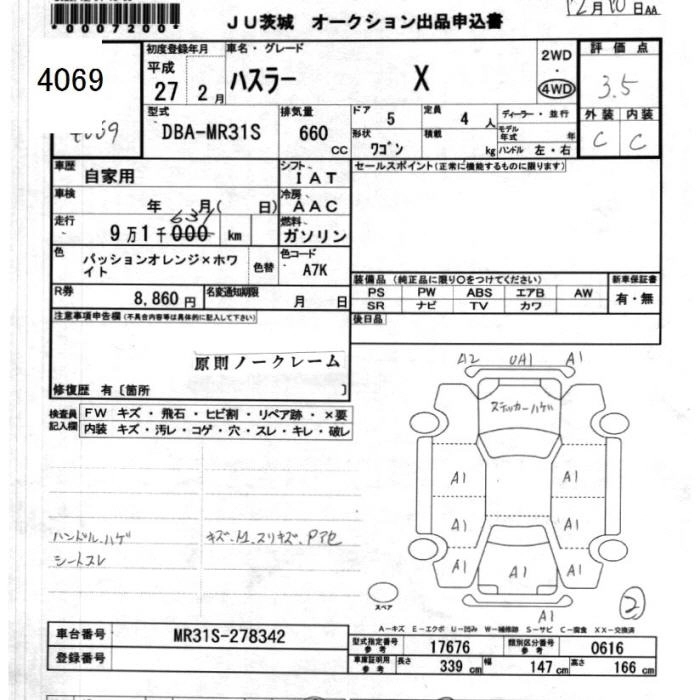 *0007200* JU茨城 オークション出品申込書 12月10日AA
4069
初度登録年月 車名・グレード 2WD 評価点
平成 27 2月 ハスラー X 4WD 3.5
型式 排気量 ドア 5 定員 4人 ディーラー・並行 外装 内装
DBA-MR31S 660cc 形状 ワゴン 積載 kg モデル年式 年 ハンドル 左・右 C C
車歴 自家用 シフト IAT セールスポイント(正常に機能するものに限ります)
車検 年 月( 日) 冷房 AAC
走行 9万1千000 631 km 燃料 ガソリン
色 パッションオレンジ×ホワイト 色替 色コード A7K
装備品(純正品に限り○をつけてください) 新車保証書
PS PW ABS エアB AW 有・無
SR ナビ TV カワ
R券 8,860円 名変通知期限 月 日
後日品
注意事項申告欄(不具合内容等は具体的に記入して下さい)
原則ノークレーム
修復歴 有〔箇所 〕
検査員記入欄 FW キズ・飛石・ヒビ割・リペア跡・×要
内装 キズ・汚レ・コゲ・穴・スレ・キレ・破レ
A2 UA1 A1
ステッカーハゲ
A1 A1
A1 A1
A1 A1 A1
A1
ハンドル.ハゲ
シートスレ
スペア
2
A-キズ E-エクボ U-凹み W-補修跡 S-サビ C-腐食 XX-交換済
車台番号 MR31S-278342
登録番号
型式指定番号 参考 17676 類別区分番号 参考 0616
車庫証明用 参考 長さ 339cm 幅 147cm 高さ 166cm